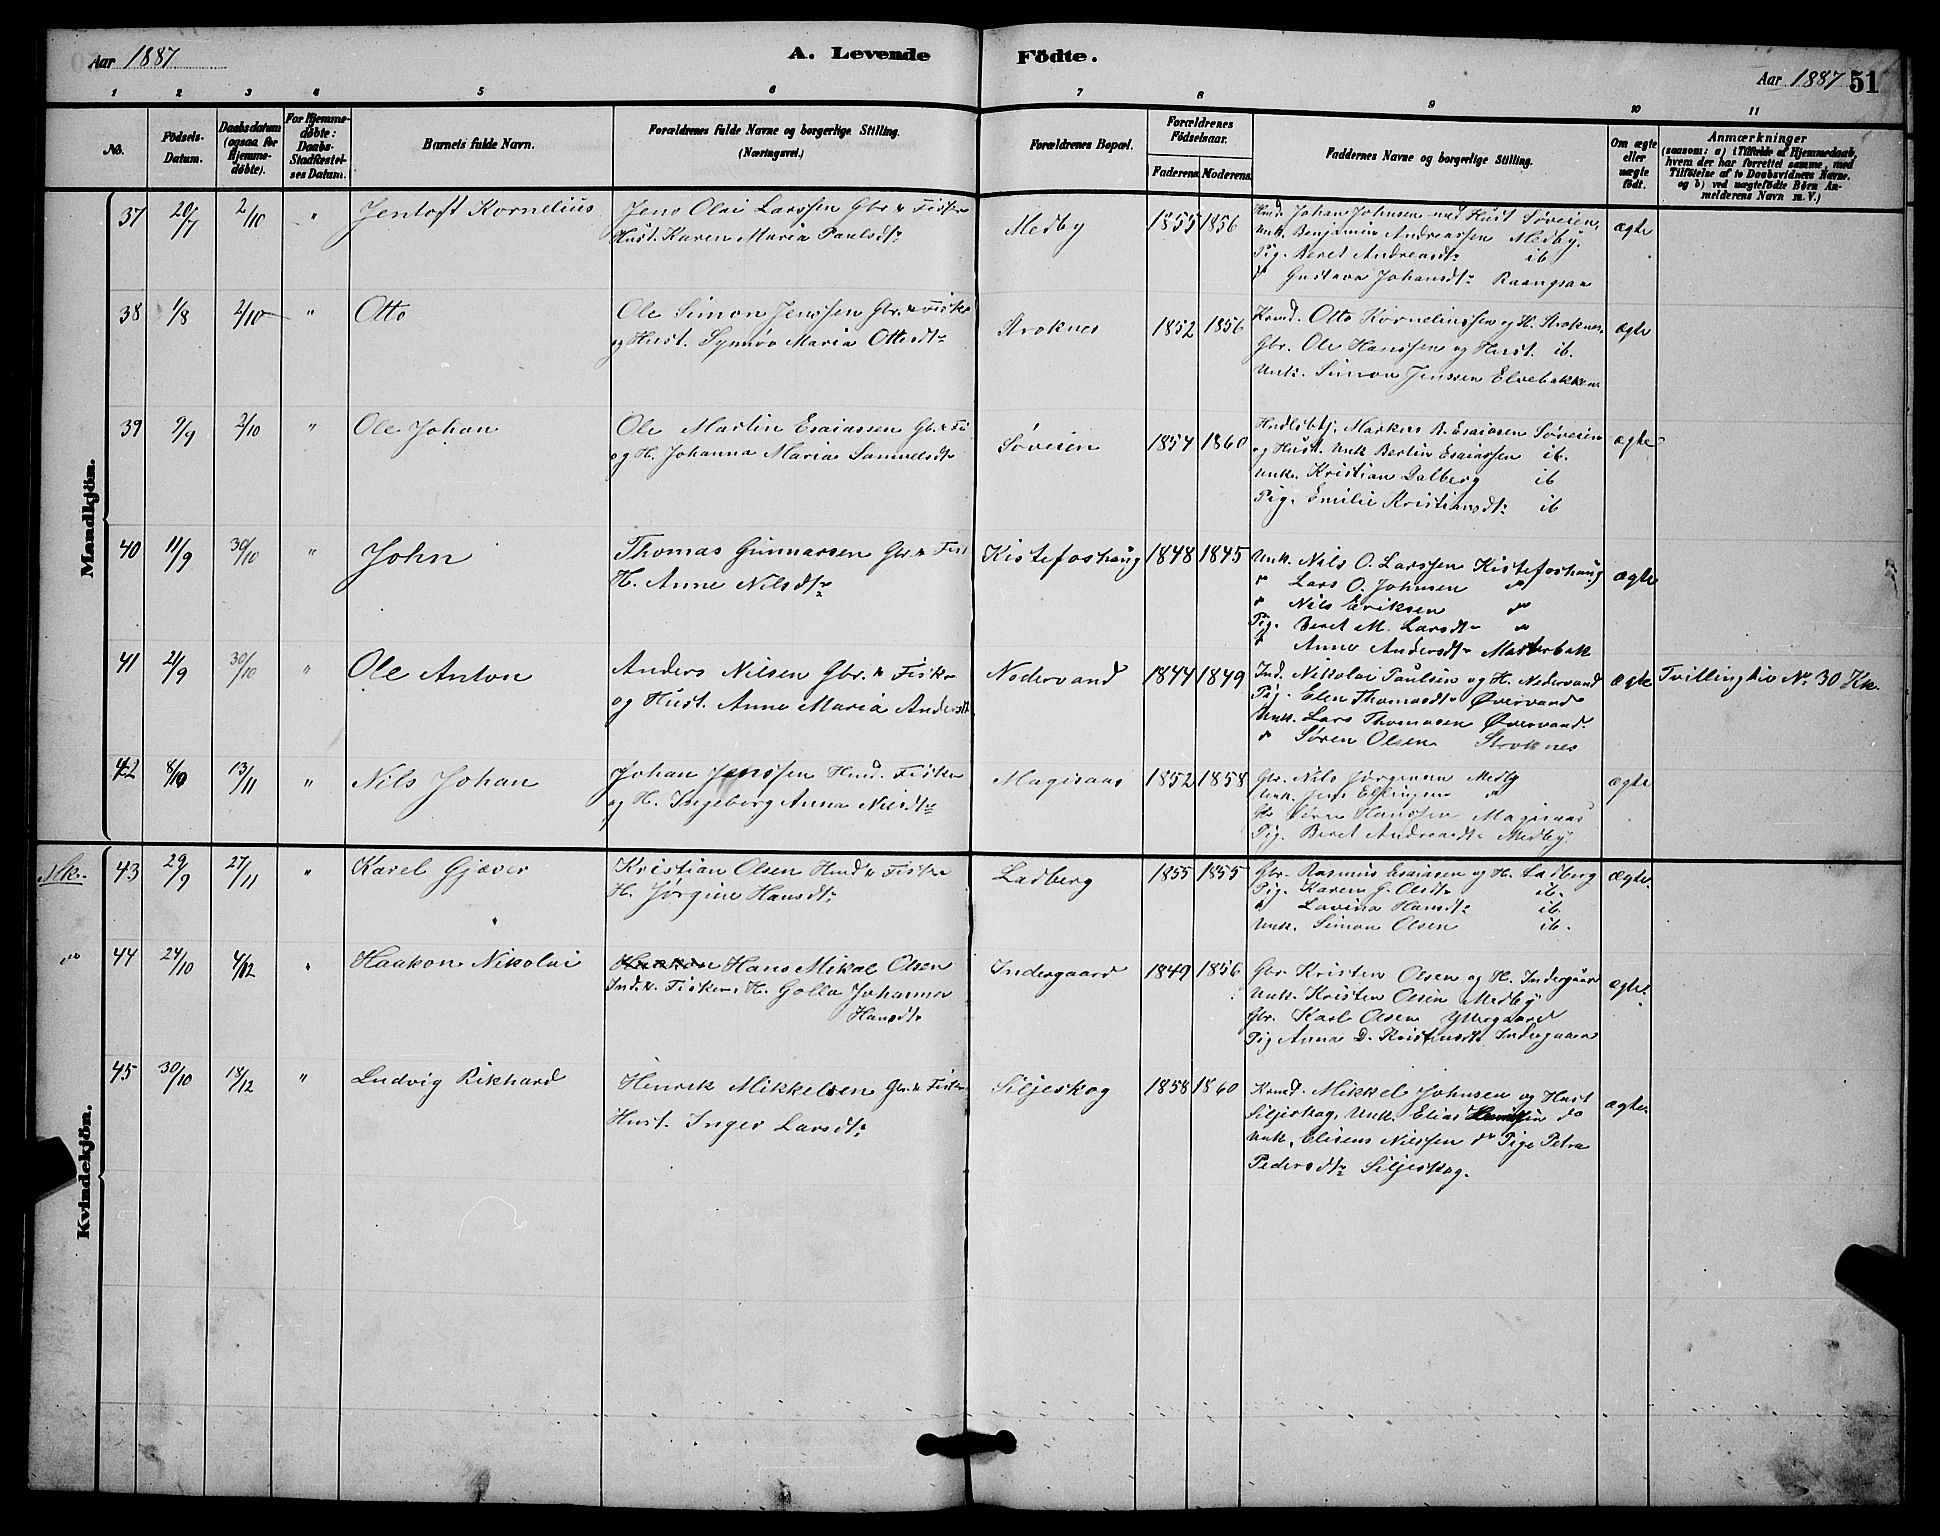 Aar 1887
A. Levende Födte.
Aar 1887 51
1 2 3 4 5 6 7 8 9 10 11
No.
Födsels-Datum.
Daabsdatum (ogsaa for Hjemme-døbte).
For Hjemme-døbte: Daabs-Stadfæstel-ses Datum.
Barnets fulde Navn.
Forældrenes fulde Navne og borgerlige Stilling.
(Næringsvei.)
Forældrenes Bopæl.
Forældrenes Födselsaar.
Faderens Moderens
Faddernes Navne og borgerlige Stilling.
Om ægte eller uægte födt.
Anmærkninger
(saasom: a) i Tilfælde af Hjemmedaab, hvem der har forrettet samme, med Tilföielse af to Daabsvidners Navne. og b) ved uægtefödte Börn An-melderens Navn m. V.)
Mandkjön.
37 20/7 2/10 " Jentoft Kornelius
Jens Olai Larssen Gbr. & Fisker
Hust. Karen Maria Paulsdtr
Medby 1855 1856
Hmd. Johan Johnsen med Hust Søveien,
Unk. Benjamin Andreassen Medby.
Pig. Beret Andreasdtr ib
d° Gustava Johansdtr
ægte
38 1/8 2/10 " Otto
Ole Simon Jenssen Gbr. & Fisker
og Hust. Synnøv Maria Ottesdtr
Stroknes 1852 1856
Kmd. Otto Kornelinssen og H. Stroknes.
Gbr. Ole Hanssen og Hust. ib.
Unk. Simon Jenssen Elvebakken
ægte
39 9/9 2/10 " Ole Johan
Ole Martin Esaiassen Gbr. & Fi
og H. Johanna Maria Samuelsdtr
Søveien 1854 1860
Markus B. Esaiasen Søveien
og Hust. Unk Berlin Esaiassen ib.
Unk. Kristian Dalberg ib
Pig. Emilie Kristiansdtr ib
ægte
40 11/9 30/10 " John
Thomas Gunnarsen Gbr. & Fisk
H. Anne Nilsdtr
Kistefoshaug 1848 1845
Unk. Nils O. Larssen Kistefoshaug
d° Lars O. Johnsen d°
d° Nils Eriksen d°
Pig. Beret M. Larsdtr d°
d° Anne Andersdtr
ægte
41 2/9 30/10 " Ole Anton
Anders Nilsen Gbr. & Fisker
og Hust. Anne Maria Andersdtr
Nedervand 1844 1849
Ind. Nikolai Paulsen og H. Nedervand
Pig. Elen Thomasdtr Øvervand
Unk. Lars Thomasen Øvervand
d° Søren Olsen Stroknes
ægte Tvilling til No 30 Kk.
42 8/10 13/11 " Nils Johan
Johan Jenssen Hmd. Fisker
og H. Ingeborg Anna Nilsdtr
Magisaas 1852 1858
Gbr. Nils Jørgensen Medby
Unk. Jens d°
Gbr Hanssen Magisaas
Pig. Beret Andreasdtr Medby
ægte
Mk.
43 29/9 27/11 " Karel Gjæver
Kristian Olsen Hmd & Fisker
H. Jørgine Hansdtr
Ladberg 1855 1855
Gbr. Rasmus Esaiasen og H. Ladberg
Pig. Karen G. Olsdtr ib.
d° Lavina Hansdtr ib.
Unk. Simon Olsen ib.
ægte.
d°
44 24/10 4/12 " Haakon Nikolai
Hans Mikal Olsen
Ind. & Fisker. H. Golla Johanna
Hansdtr
Indergaard 1849 1856
Gbr. Kristen Olsen og H. Indergaard
Unk. Kristen Olsen Medby
Gbr. Karl Olsen Yttergaard
Pig Anna D. Kristensdtr Indergaard
ægte.
45 30/10 18/12 " Ludvig Rikhard
Henrik Mikkelsen Gbr. & Fisker
Hust. Inger Larsdtr
Siljeskog 1858 1860
Kmd. Mikkel Johnsen og Hust
Siljeskog, Unk. Elias do
Unk. Elisens Nilssen d° Pige Petra
Pedersdtr Siljeskog.
ægte.
Kvindekjön.